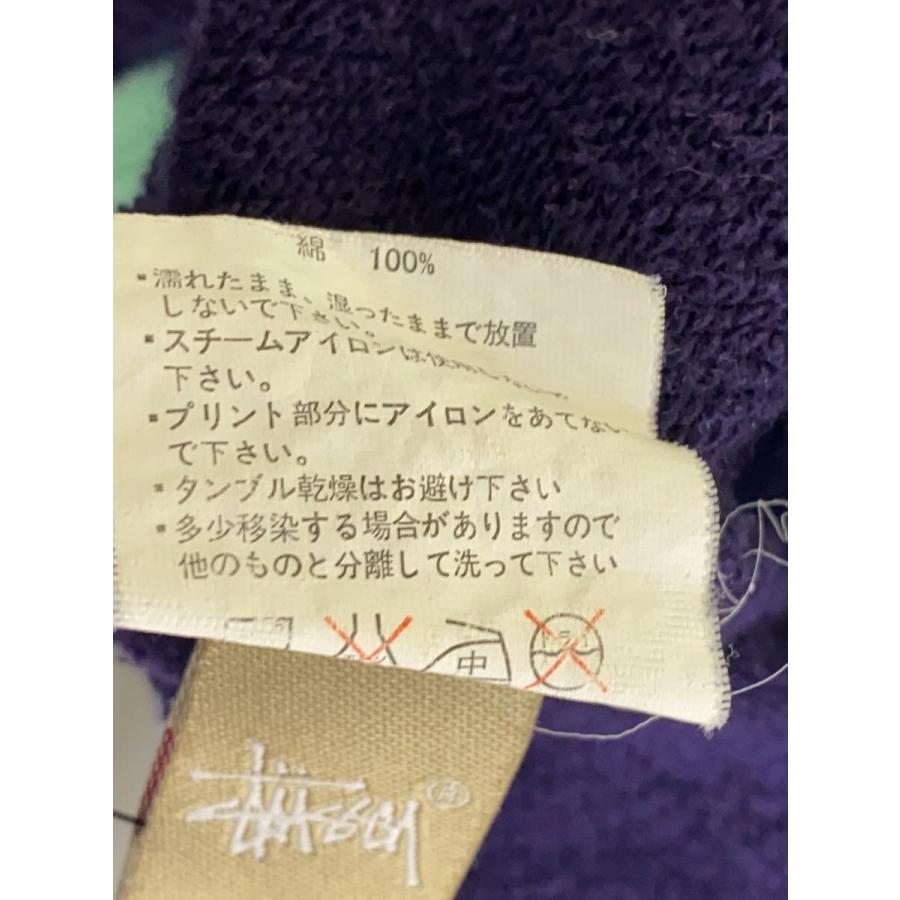 綿 100%
・濡れたまま、湿ったままで放置
しないで下さい。
・スチームアイロンは使用しないで
下さい。
・プリント部分にアイロンをあてない
で下さい。
・タンブル乾燥はお避け下さい
・多少移染する場合がありますので
他のものと分離して洗って下さい
中
ドライ
Stüssy ®